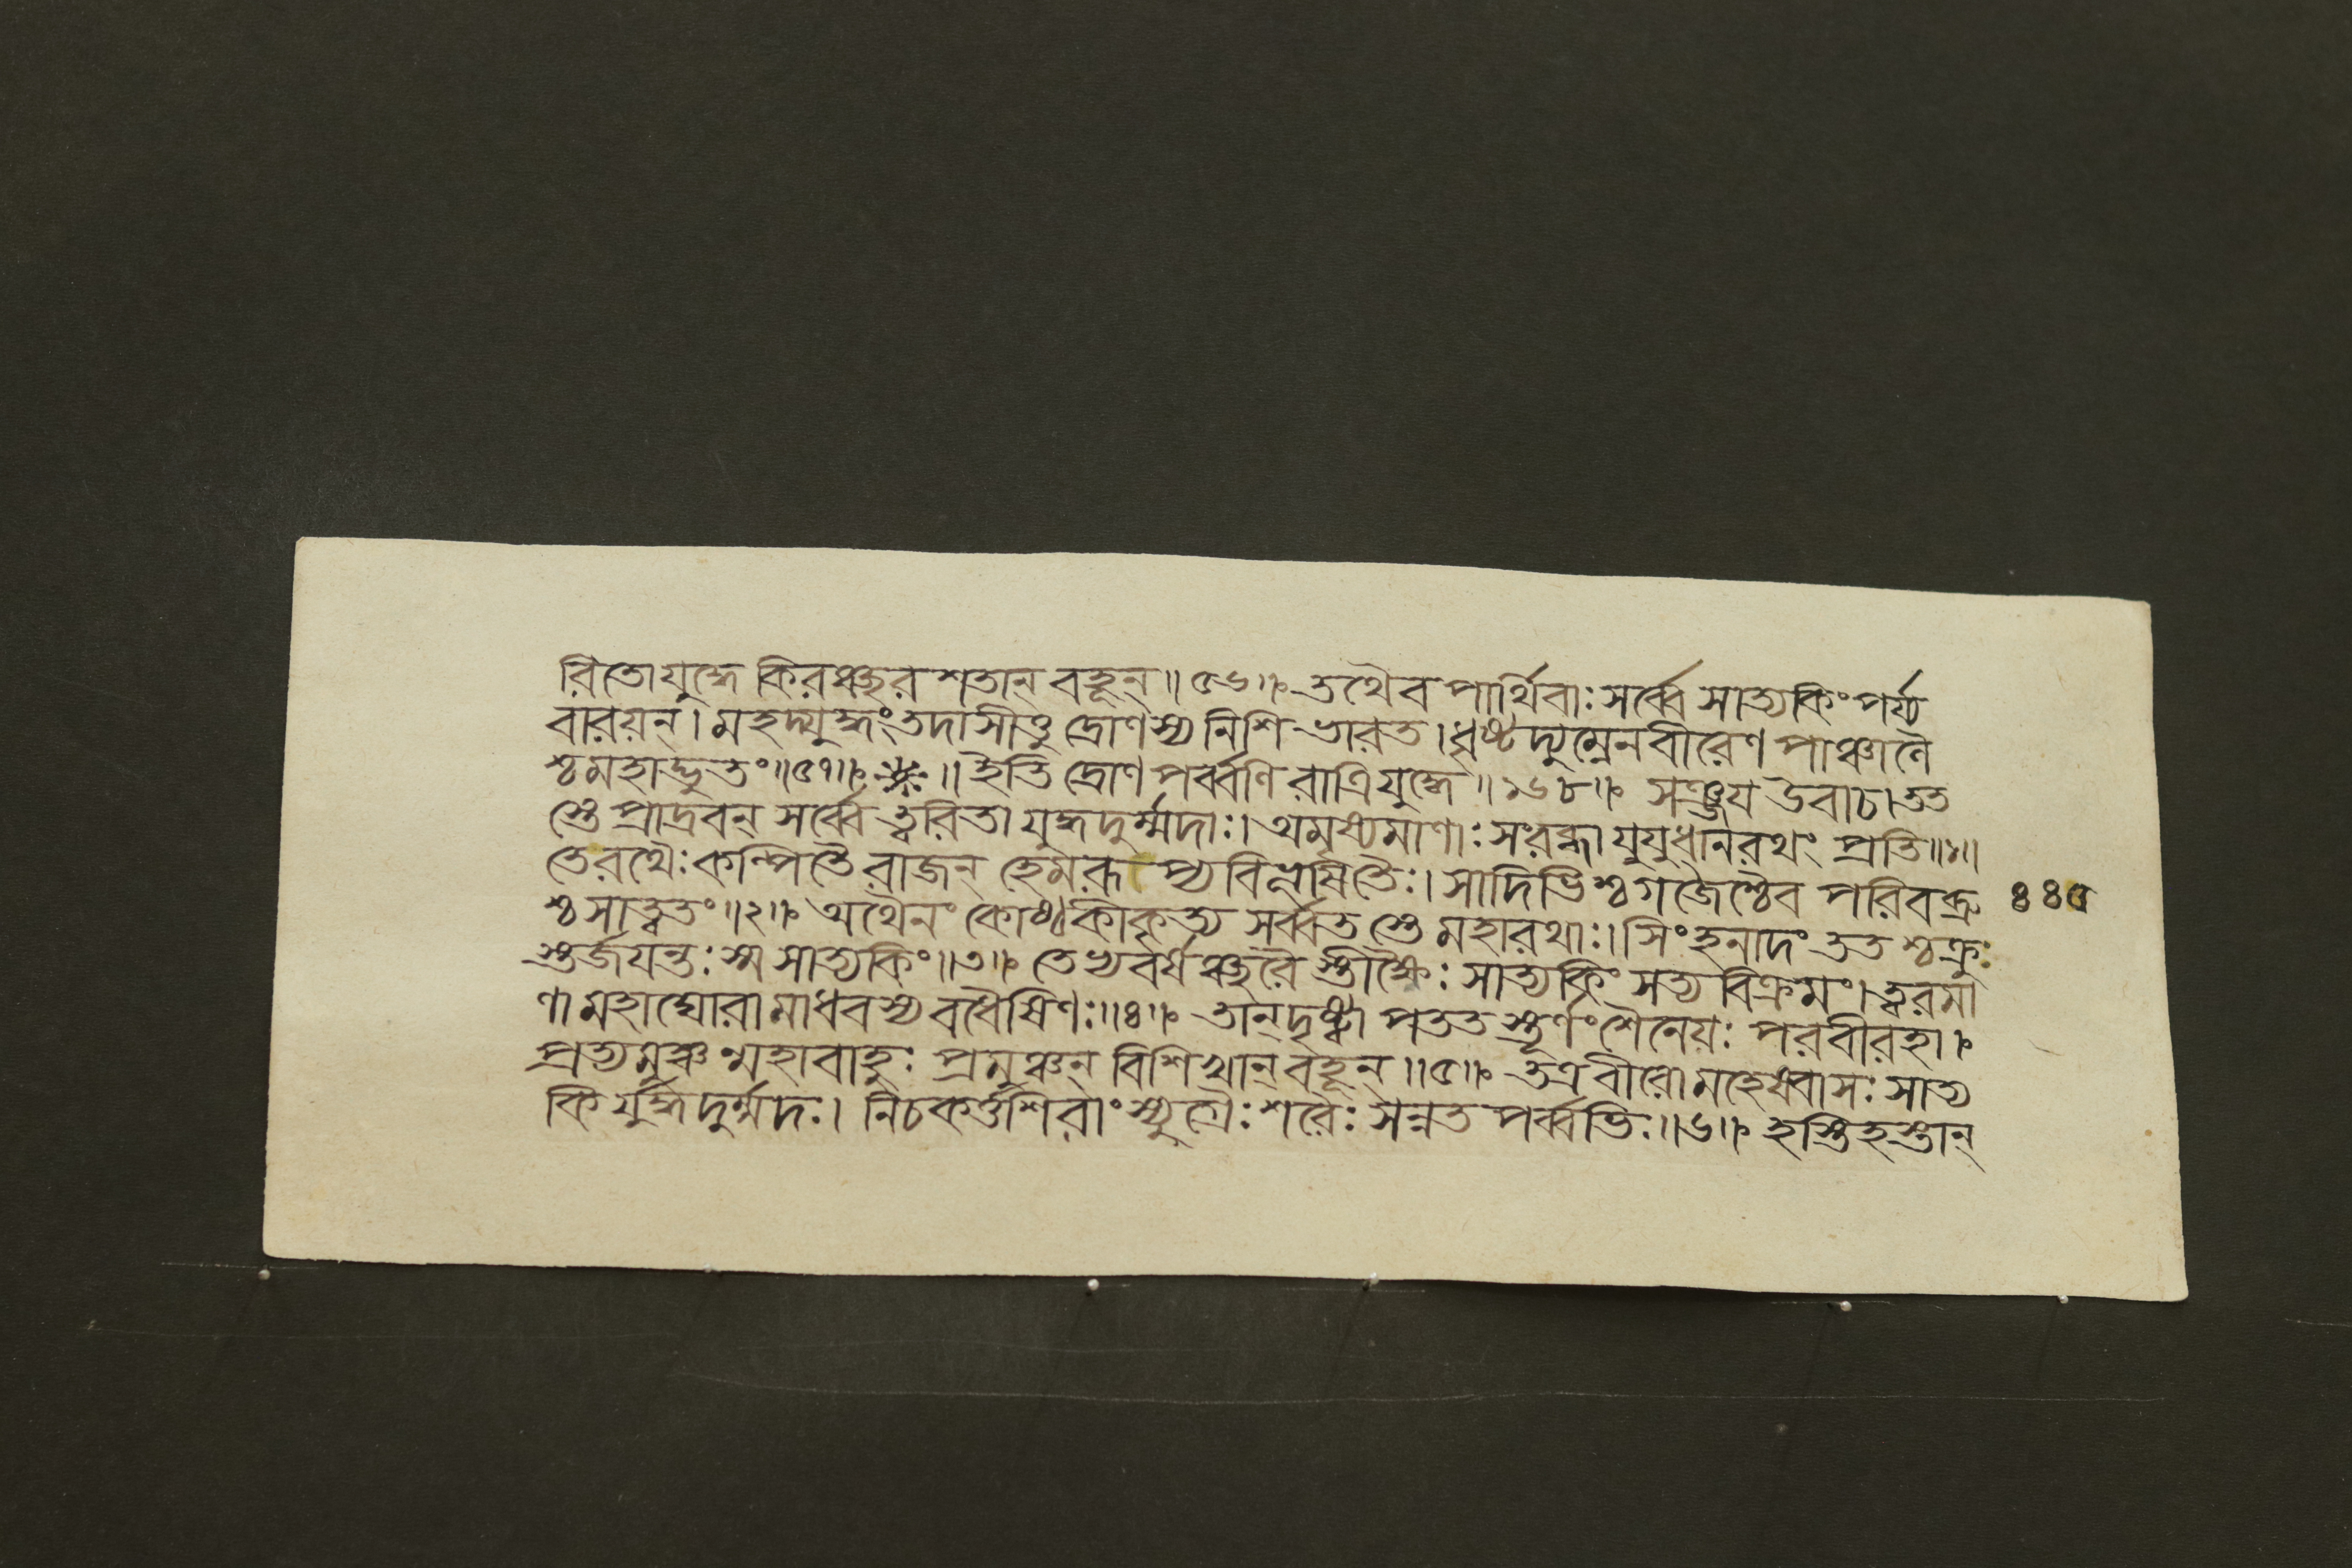 রিতো যুদ্ধে কিরঞ্ছর শতান্ বহূন্॥৫৬॥ তথৈব পার্থিবাঃ সর্ব্বে সাত্যকিং পর্য্য
বারয়ন্। মহদ্যুদ্ধং তদাসীত্তু দ্রোণস্য নিশি ভারত। ধৃষ্টদ্যুম্নেন বীরেণ পাঞ্চালৈ
শ্চ মহাদ্ভুতং॥৫৭॥ ॥ ইতি দ্রোণপর্ব্বণি রাত্রিযুদ্ধে॥১৬৮॥ সঞ্জয় উবাচ। তত
স্তে প্রাদ্রবন্ সর্ব্বে ত্বরিতা যুদ্ধদুর্ম্মদাঃ। অমৃষ্যমাণাঃ সংরব্ধা যুযুধানরথং প্রতি॥১॥
তে রথৈঃ কল্পিতৈ রাজন্ হেমরূপ্য বিভূষিতৈঃ। সাদিভিশ্চ গজৈশ্চৈব পরিবব্রু ৪৪৫
শ্চ সাত্বতং॥২॥ অথৈনং কোষ্ঠকীকৃত্য সর্ব্বত স্তে মহারথাঃ। সিংহনাদং তত শ্চক্রু
স্তর্জয়ন্তঃ স্ম সাত্যকিং॥৩॥ তেভ্যবর্ষঞ্ছরৈ স্তীক্ষ্ণৈঃ সাত্যকিং সত্যবিক্রমং। ত্বরমা
ণা মহাঘোরা মাধবস্য বধৈষিণঃ॥৪॥ তান্ দৃষ্ট্বা পততস্তূর্ণং শৈনেয়ঃ পরবীরহা।
প্রত্যমুঞ্চন্মহাবাহুঃ প্রমুঞ্চন্ বিশিখান্ বহূন্॥৫॥ তত্র বীরো মহেষ্বাসঃ সাত্য
কি র্যুদ্ধদুর্ম্মদঃ। নিচকর্ত্ত শিরাংস্যুগ্রৈঃ শরৈঃ সন্নতপর্ব্বভিঃ॥৬॥ হস্তিহস্তান্